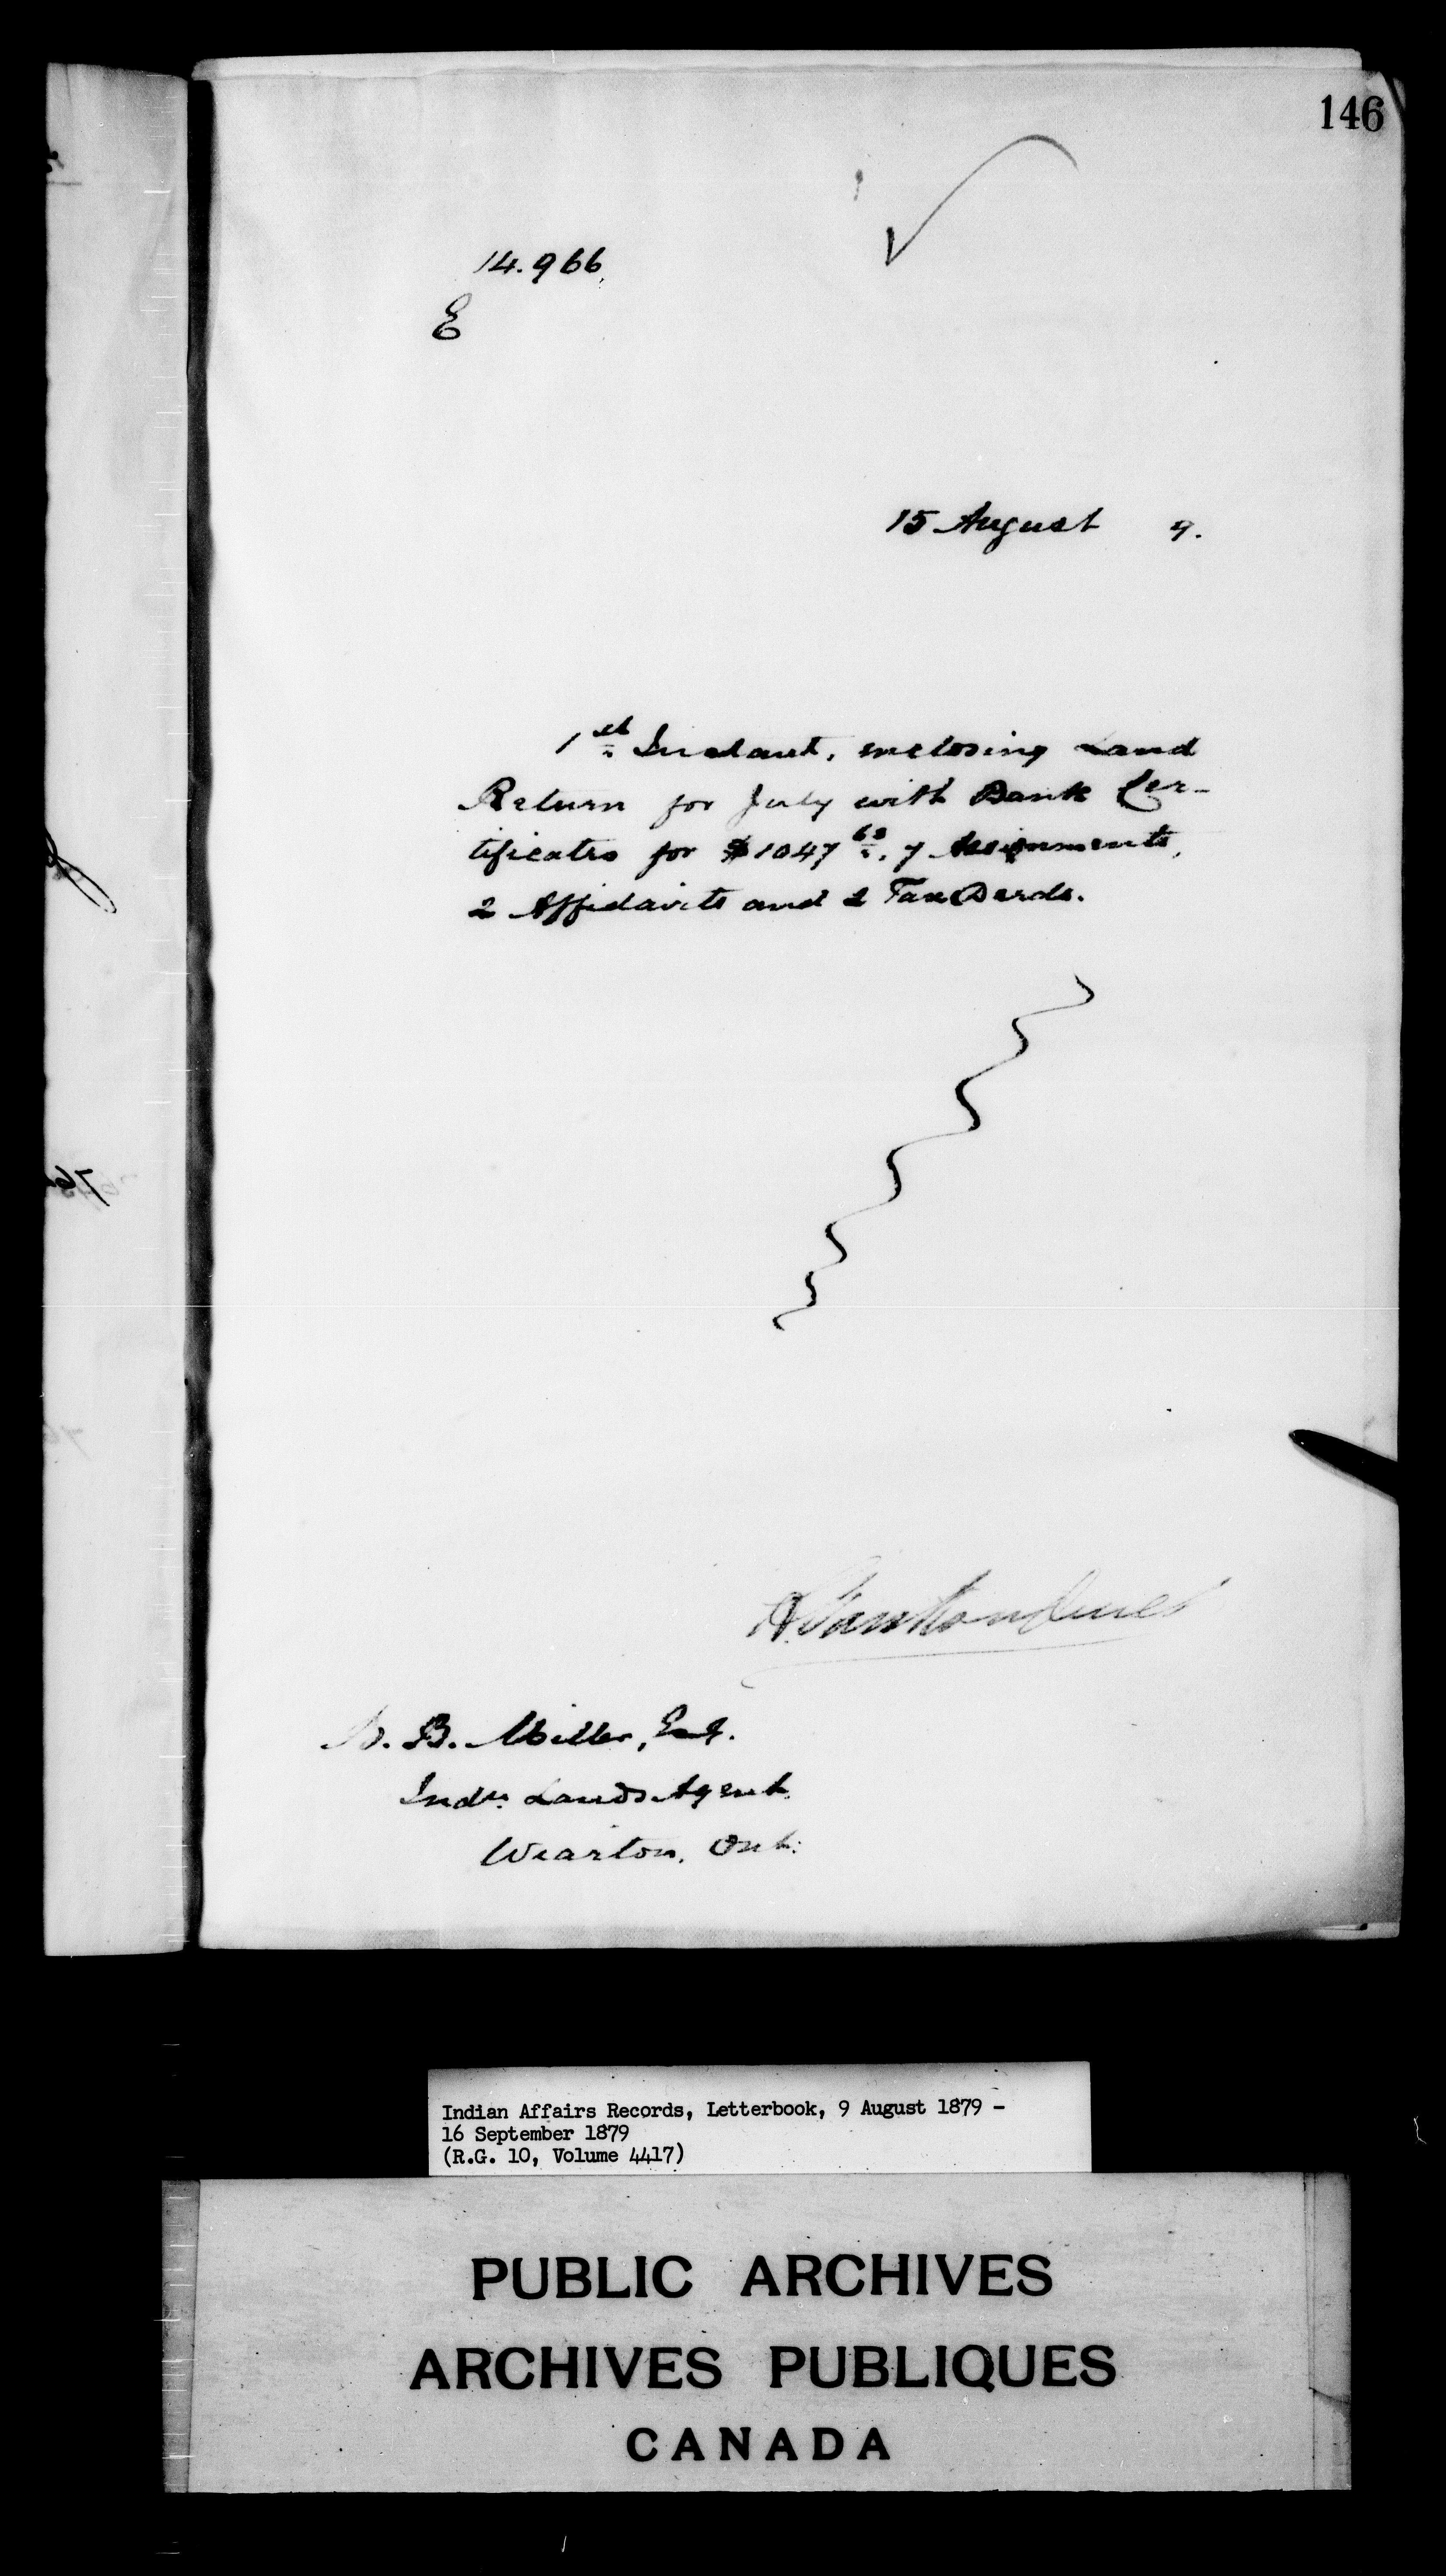 146
14.966
E
15 August 9.
1st Instant, enclosing Land
Return for July with Bank Cer-
tificates for $1047 63. 7 Assignments,
2 Affidavits and 2 Tax Deeds.
B. Miller, Esq.
Indn. Lands Agent
Wiarton, Ont:
Indian Affairs Records, Letterbook, 9 August 1879 -
16 September 1879
(R.G. 10, Volume 4417)
PUBLIC ARCHIVES
ARCHIVES PUBLIQUES
CANADA